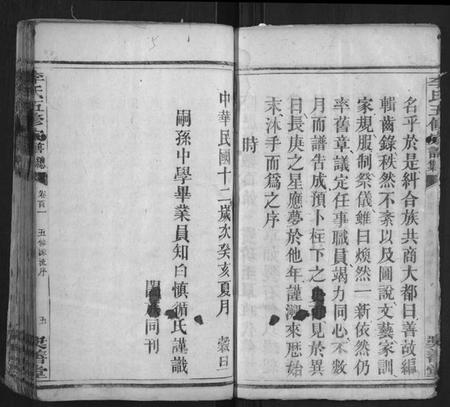 名乎於是糾合族共商大都曰善故編
輯齒錄秩然不紊以及圖說文藝家訓
家規服制祭儀雖曰煥然一新依然仍
率舊章議定任事職員竭力同心不數
月而譜告成預卜柱下之 見於異
日長庚之星應夢於他年謹溯來歷始
末沐手而爲之序
時
中華民國十二歲次癸亥夏月 穀旦
嗣孫中學畢業員知白慎循氏謹識
同刊
李氏五修 首總
卷首一
五修源流序
五
李氏五修 譜